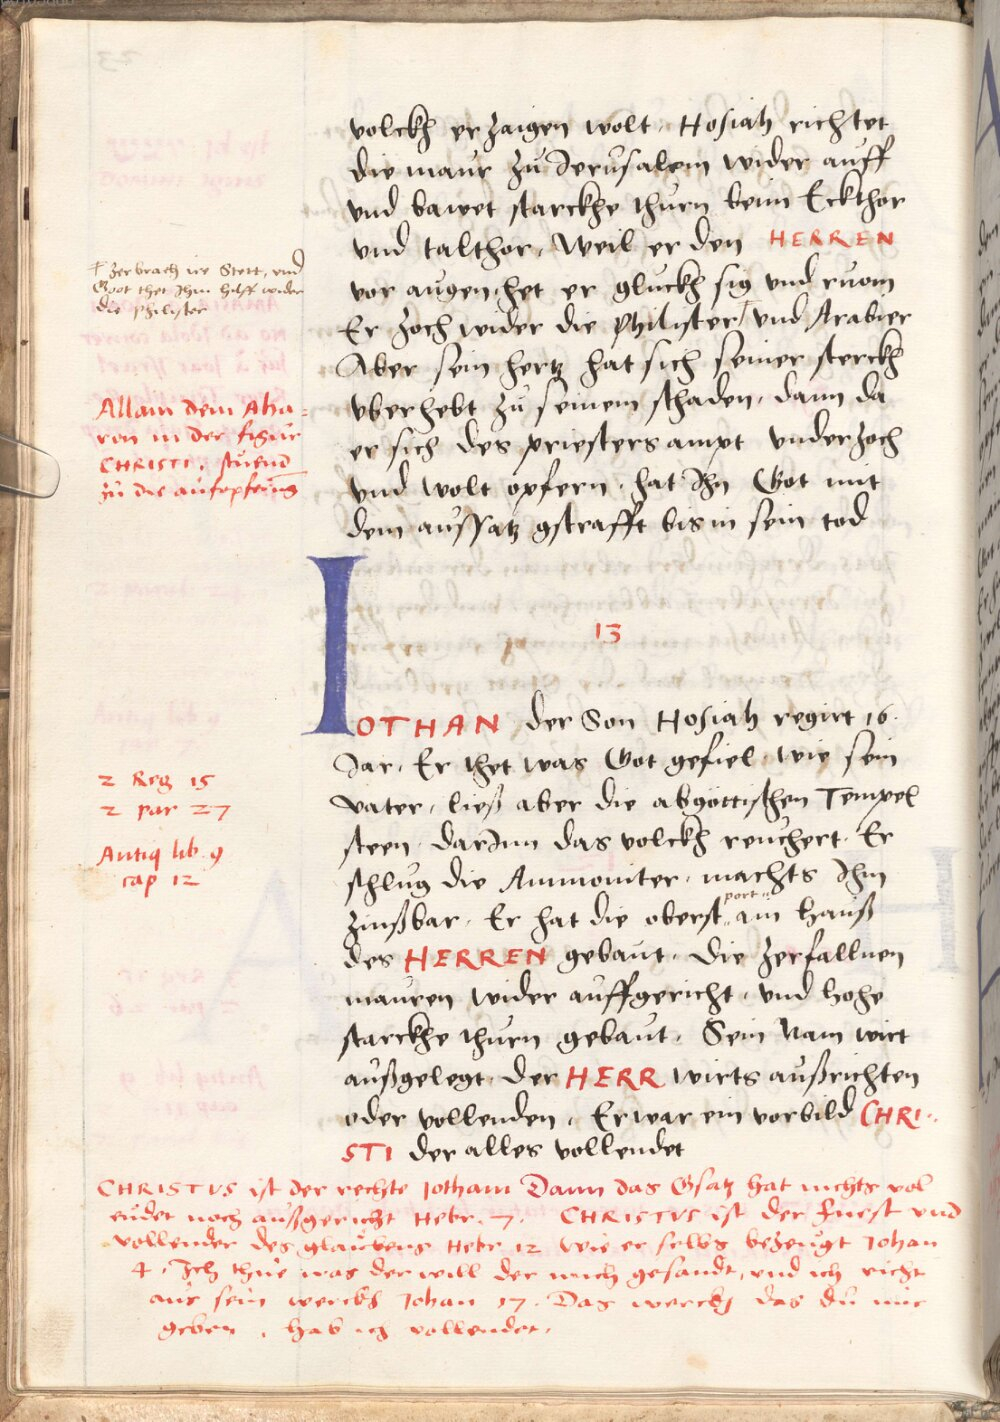 volckh erzaigen wolt, Hosiah richtet
die maur zu Jerusalem wider auff
vnd bawet starckhe thurn beim Eckthor
vnd talthor, Weil er den HERREN
vor augen het er gluckh sig vnd ruom
Er zoch wider die philister † vnd Arabier
Aber sein hertz hat sich seiner sterckh
vberhebt zu seinem schaden, dann da
er sich des priesters ampt vnderzoch
vnd wolt opfern, hat Jhn Got mit
dem aussatz gstrafft bis in sein tod
† Zerbrach ire Stett, vnd
Got thet Jhm hilff wider
die philister
Allain dem Aha=
ron in der figur
CHRISTI, stuend
zu die aufopferung
13
IOTHAN der Son Hosiah regirt 16.
Jar, Er thet was Got gefiel, wie sein
vater, ließ aber die abgöttischen Tempel
steen, darJnn das volckh reuchert. Er
schlug die Ammoniter, machts Jhm
zinßbar. Er hat die oberst port am hauß
des HERREN gebaut. Die zerfallnen
mauren wider auffgericht, vnd hohe
starckhe thurn gebaut, Sein Nam wirt
außgelegt, der HERR wirts außrichten
oder vollenden, Er war ein vorbild CHRI-
STI der alles vollendet
2 Reg 15
2 par 27
Antiq lib. 9
cap 12
CHRISTVS ist der rechte Jotham Dann das Gsatz hat nichts vol
endet noch außgericht Hebr. 7. CHRISTVS ist der furst vnd
vollender des glaubens Hebr 12 wie er selbs bezeugt Johan
4. Jch thue was der will der mich gesandt, vnd ich richt
aus sein werckh Johan 17. Das werckh das du mir
geben, hab ich vollendet.